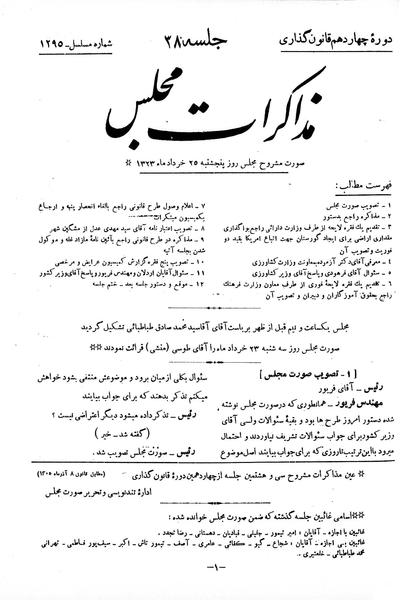 دورهٔ چهاردهم قانون گذاری
جلسه ۳۸
شماره مسلسل - ۱۲۹۵
مذاکرات مجلس
صورت مشروح مجلس روز پنجشنبه ۲۵ خرداد ماه ۱۳۲۳ *
فهرست مطالب:
۱ - تصویب صورت مجلس
۲ - مذاکره راجع بدستور
۳ - تقدیم یک فقره لایحه از طرف وزارت دارائی راجع بواگذاری
مقداری اراضی برای ایجاد گورستان جهت اتباع امریکا بقید دو
فوریت و تصویب آن
۴ - معرفی آقای دکتر آزموده بمعاونت وزارت کشاورزی
۵ - سئوال آقای فرهودی و پاسخ آقای وزیر کشاورزی
۶ - تقدیم یک فقره لایحهٔ فوری از طرف معاون وزارت فرهنگ
راجع بحقوق آموزگاران و دبیران و تصویب آن
۷ - اعلام وصول طرح قانونی راجع بالغاء انحصار پنبه و ارجاع
بکمیسیون مبتکرات
۸ - تصویب اعتبار نامه آقای سید مهدی عدل از مشکین شهر
۹ - مذاکره در طرح قانونی راجع بآئین نامهٔ مازاد غله و موکول
شدن بجلسه آتیه
۱۰ - تصویب پنج فقره گزارش کمیسیون عرایض و مرخصی
۱۱ - سئوال آقایان اردلان و مهندس فریور و پاسخ آقای وزیر کشور
۱۲ - موقع و دستور جلسه بعد - ختم جلسه
مجلس یکساعت و نیم قبل از ظهر بریاست آقای آقاسید محمد صادق طباطبائی تشکیل گردید
صورت مجلس روز سه شنبه ۲۳ خرداد ماه را آقای طوسی (منشی) قرائت نمودند **
[ ۱ - تصویب صورت مجلس ]
رئیس - آقای فریور
مهندس فریور - همانطوری که در صورت مجلس نوشته
شده دستور امروز طرح ها بود و بقیهٔ سئوالات ولی آقای
وزیر کشور برای جواب سئوالات تشریف نیاوردند و احتمال
میرود با این ترتیب تا روزی که برای جواب بیایند اصل موضوع
سئوال بکلی از میان برود و موضوعش منتفی بشود خواهش
میکنم تذکر بدهند که برای جواب بیایند
رئیس - تذکر داده میشود دیگر اعتراضی نیست ؟
(گفته شد - خیر)
رئیس - صورت مجلس تصویب شد .
* عین مذاکرات مشروح سی و هشتمین جلسه از چهاردهمین دورهٔ قانون گذاری
(مطابق قانون ۸ آذرماه ۱۳۰۵)
ادارهٔ تندنویسی و تحریر صورت مجلس
** اسامی غائبین جلسه گذشته که ضمن صورت مجلس خوانده شده :
غائبین با اجازه - آقایان : امیر تیمور - جلیلی - قبادیان - دهستانی - رضا تجدد .
غائبین بی اجازه - آقایان : شجاع - گیو - کفائی - عامری - آصف - تیمور تاش - اکبر - سیف پور فاطمی - تهرانی
محمد طباطبائی - خلعتبری .
-۱-